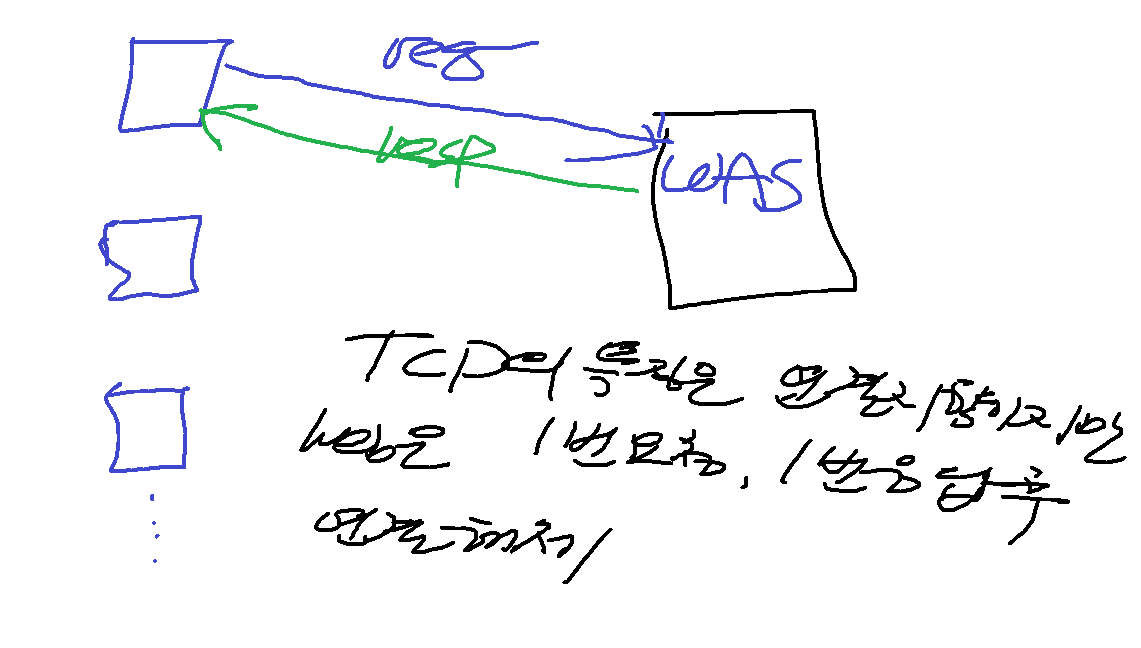 req
resp
WAS
TCP의 특징은 연결지향이지만
Web은 1번요청, 1번응답후
연결해지